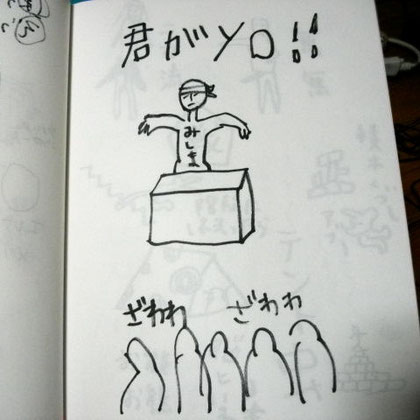 君がYO!!
みしま
ざわわ ざわわ